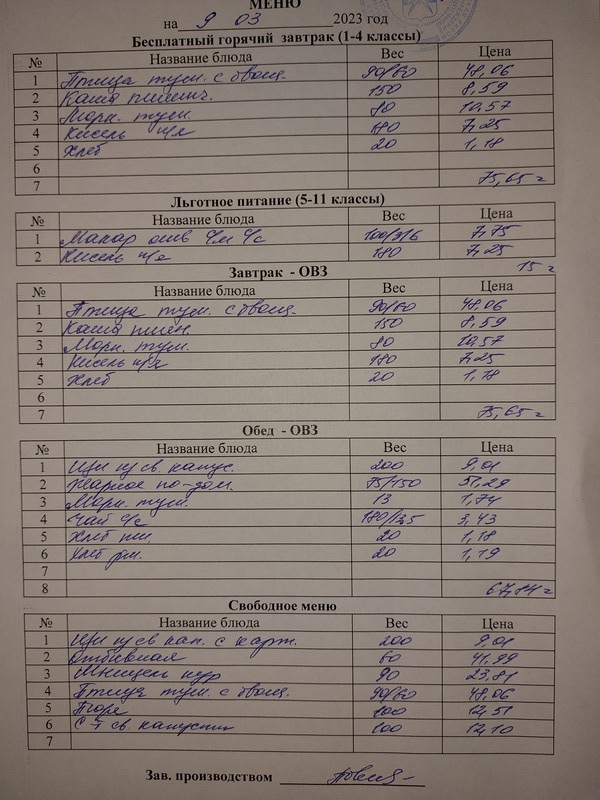 МЕНЮ
на 9 03 2023 год
Бесплатный горячий завтрак (1-4 классы)
№ Название блюда Вес Цена
1 Птица туш. с овощ. 90/60 48,06
2 Каша пшенич. 150 8,59
3 Морк. туш. 80 10,57
4 Кисель п/я 180 7,25
5 Хлеб 20 1,18
6
7 75,65
Льготное питание (5-11 классы)
№ Название блюда Вес Цена
1 Макар отв с/м с/с 100/3/6 7,75
2 Кисель п/я 180 7,25
15
Завтрак - ОВЗ
№ Название блюда Вес Цена
1 Птица туш. с овощ. 90/60 48,06
2 Каша пшен. 150 8,59
3 Морк. туш. 80 10,57
4 Кисель п/я 180 7,25
5 Хлеб 20 1,18
6
7 75,65
Обед - ОВЗ
№ Название блюда Вес Цена
1 Щи из св. капус. 200 9,01
2 Жаркое по-дом. 75/150 51,29
3 Морк. туш. 13 1,74
4 Чай с/с 180/12,5 3,43
5 Хлеб пш. 20 1,18
6 Хлеб рж. 20 1,19
7
8 67,84
Свободное меню
№ Название блюда Вес Цена
1 Щи из св кап. с карт. 200 9,01
2 Отбивная 60 41,99
3 Шницель кур 90 23,81
4 Птица туш. с овощ. 90/60 48,06
5 Пюре 100 12,51
6 С-т св. капусты 100 12,10
7
Зав. производством